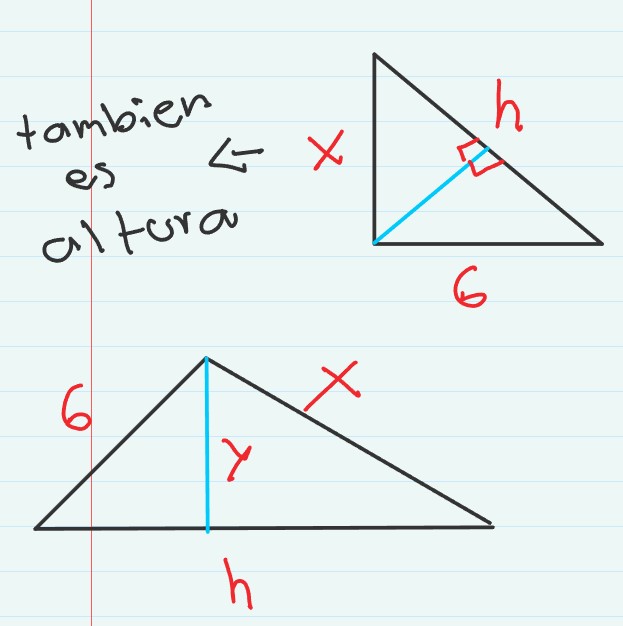 tambien
es
altura
←
x
h
6
6
x
y
h